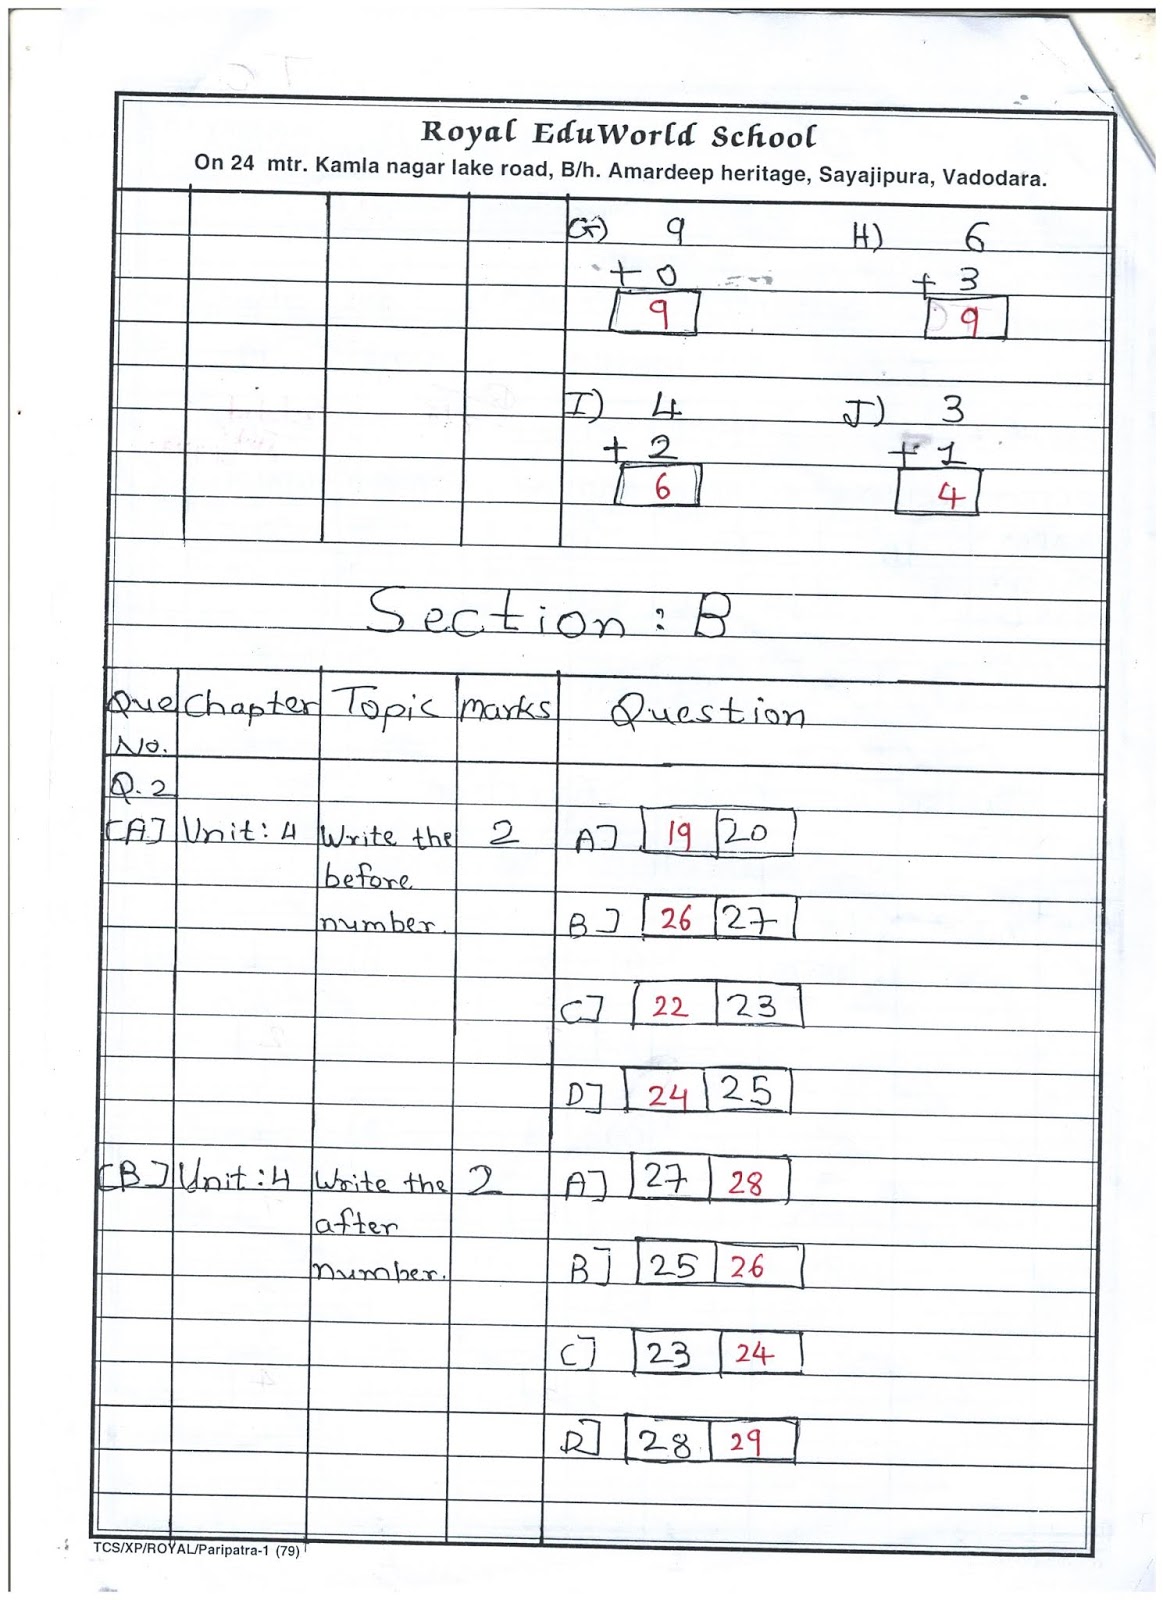 Royal EduWorld School
On 24 mtr. Kamla nagar lake road, B/h. Amardeep heritage, Sayajipura, Vadodara.
G) 9 H) 6
+ 0 + 3
9 9
I) 4 J) 3
+ 2 + 1
6 4
Section : B
Que Chapter Topic marks Question
No.
Q. 2
[A] Unit: 4 Write the 2 A] 19 20
before
number. B] 26 27
C] 22 23
D] 24 25
[B] Unit: 4 Write the 2 A] 27 28
after
number. B] 25 26
C] 23 24
D] 28 29
TCS/XP/ROYAL/Paripatra-1 (79)